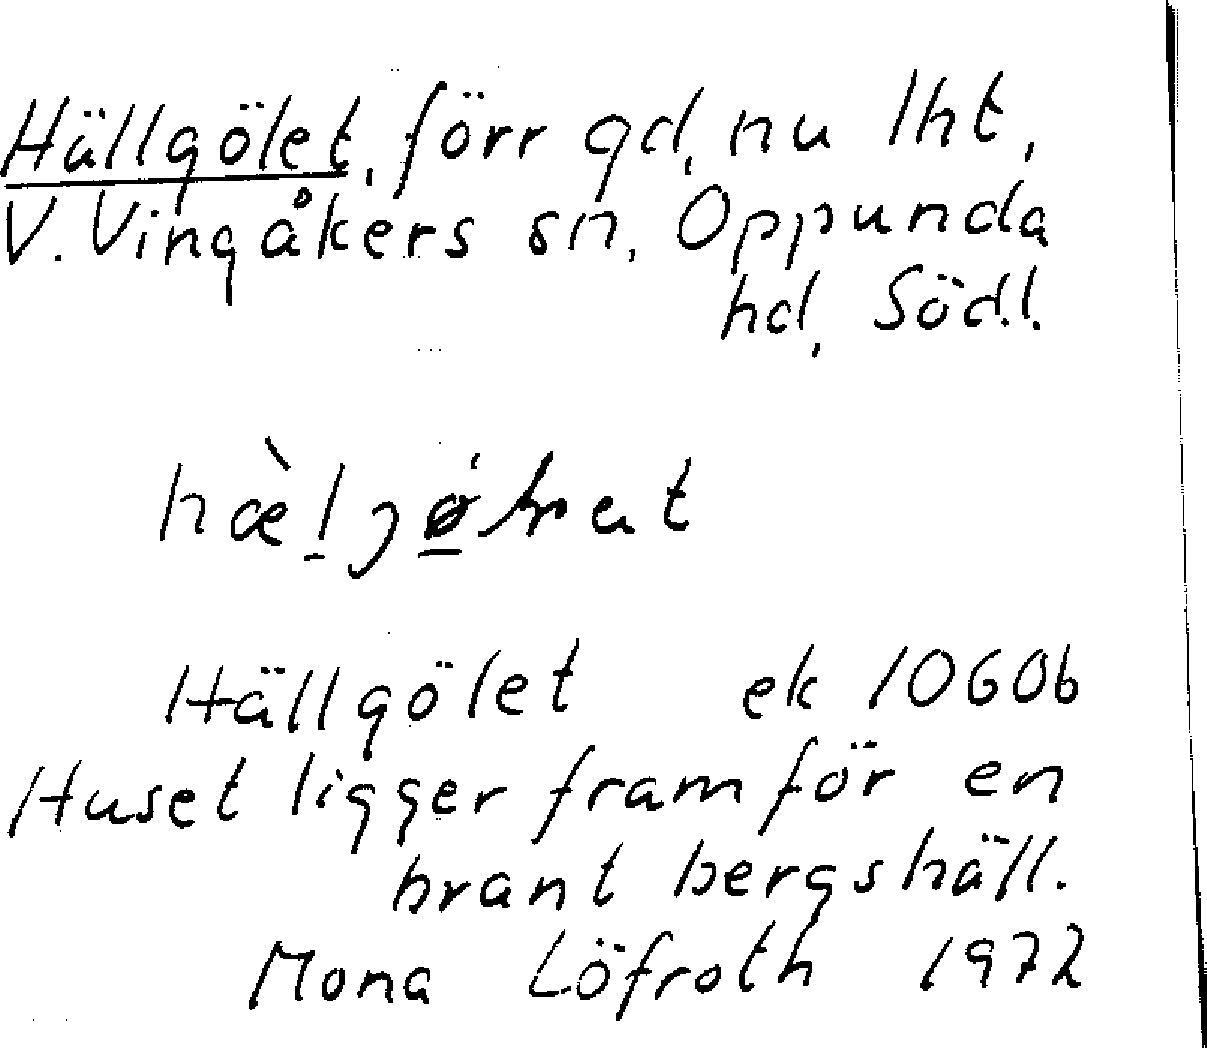 Hällgölet, förr gd, nu lht,
V. Vingåkers sn, Oppunda
hd, Södl.
Hällgölet ek 10606b
Huset ligger framför en
brant bergshäll.
Mona Löfroth 1972